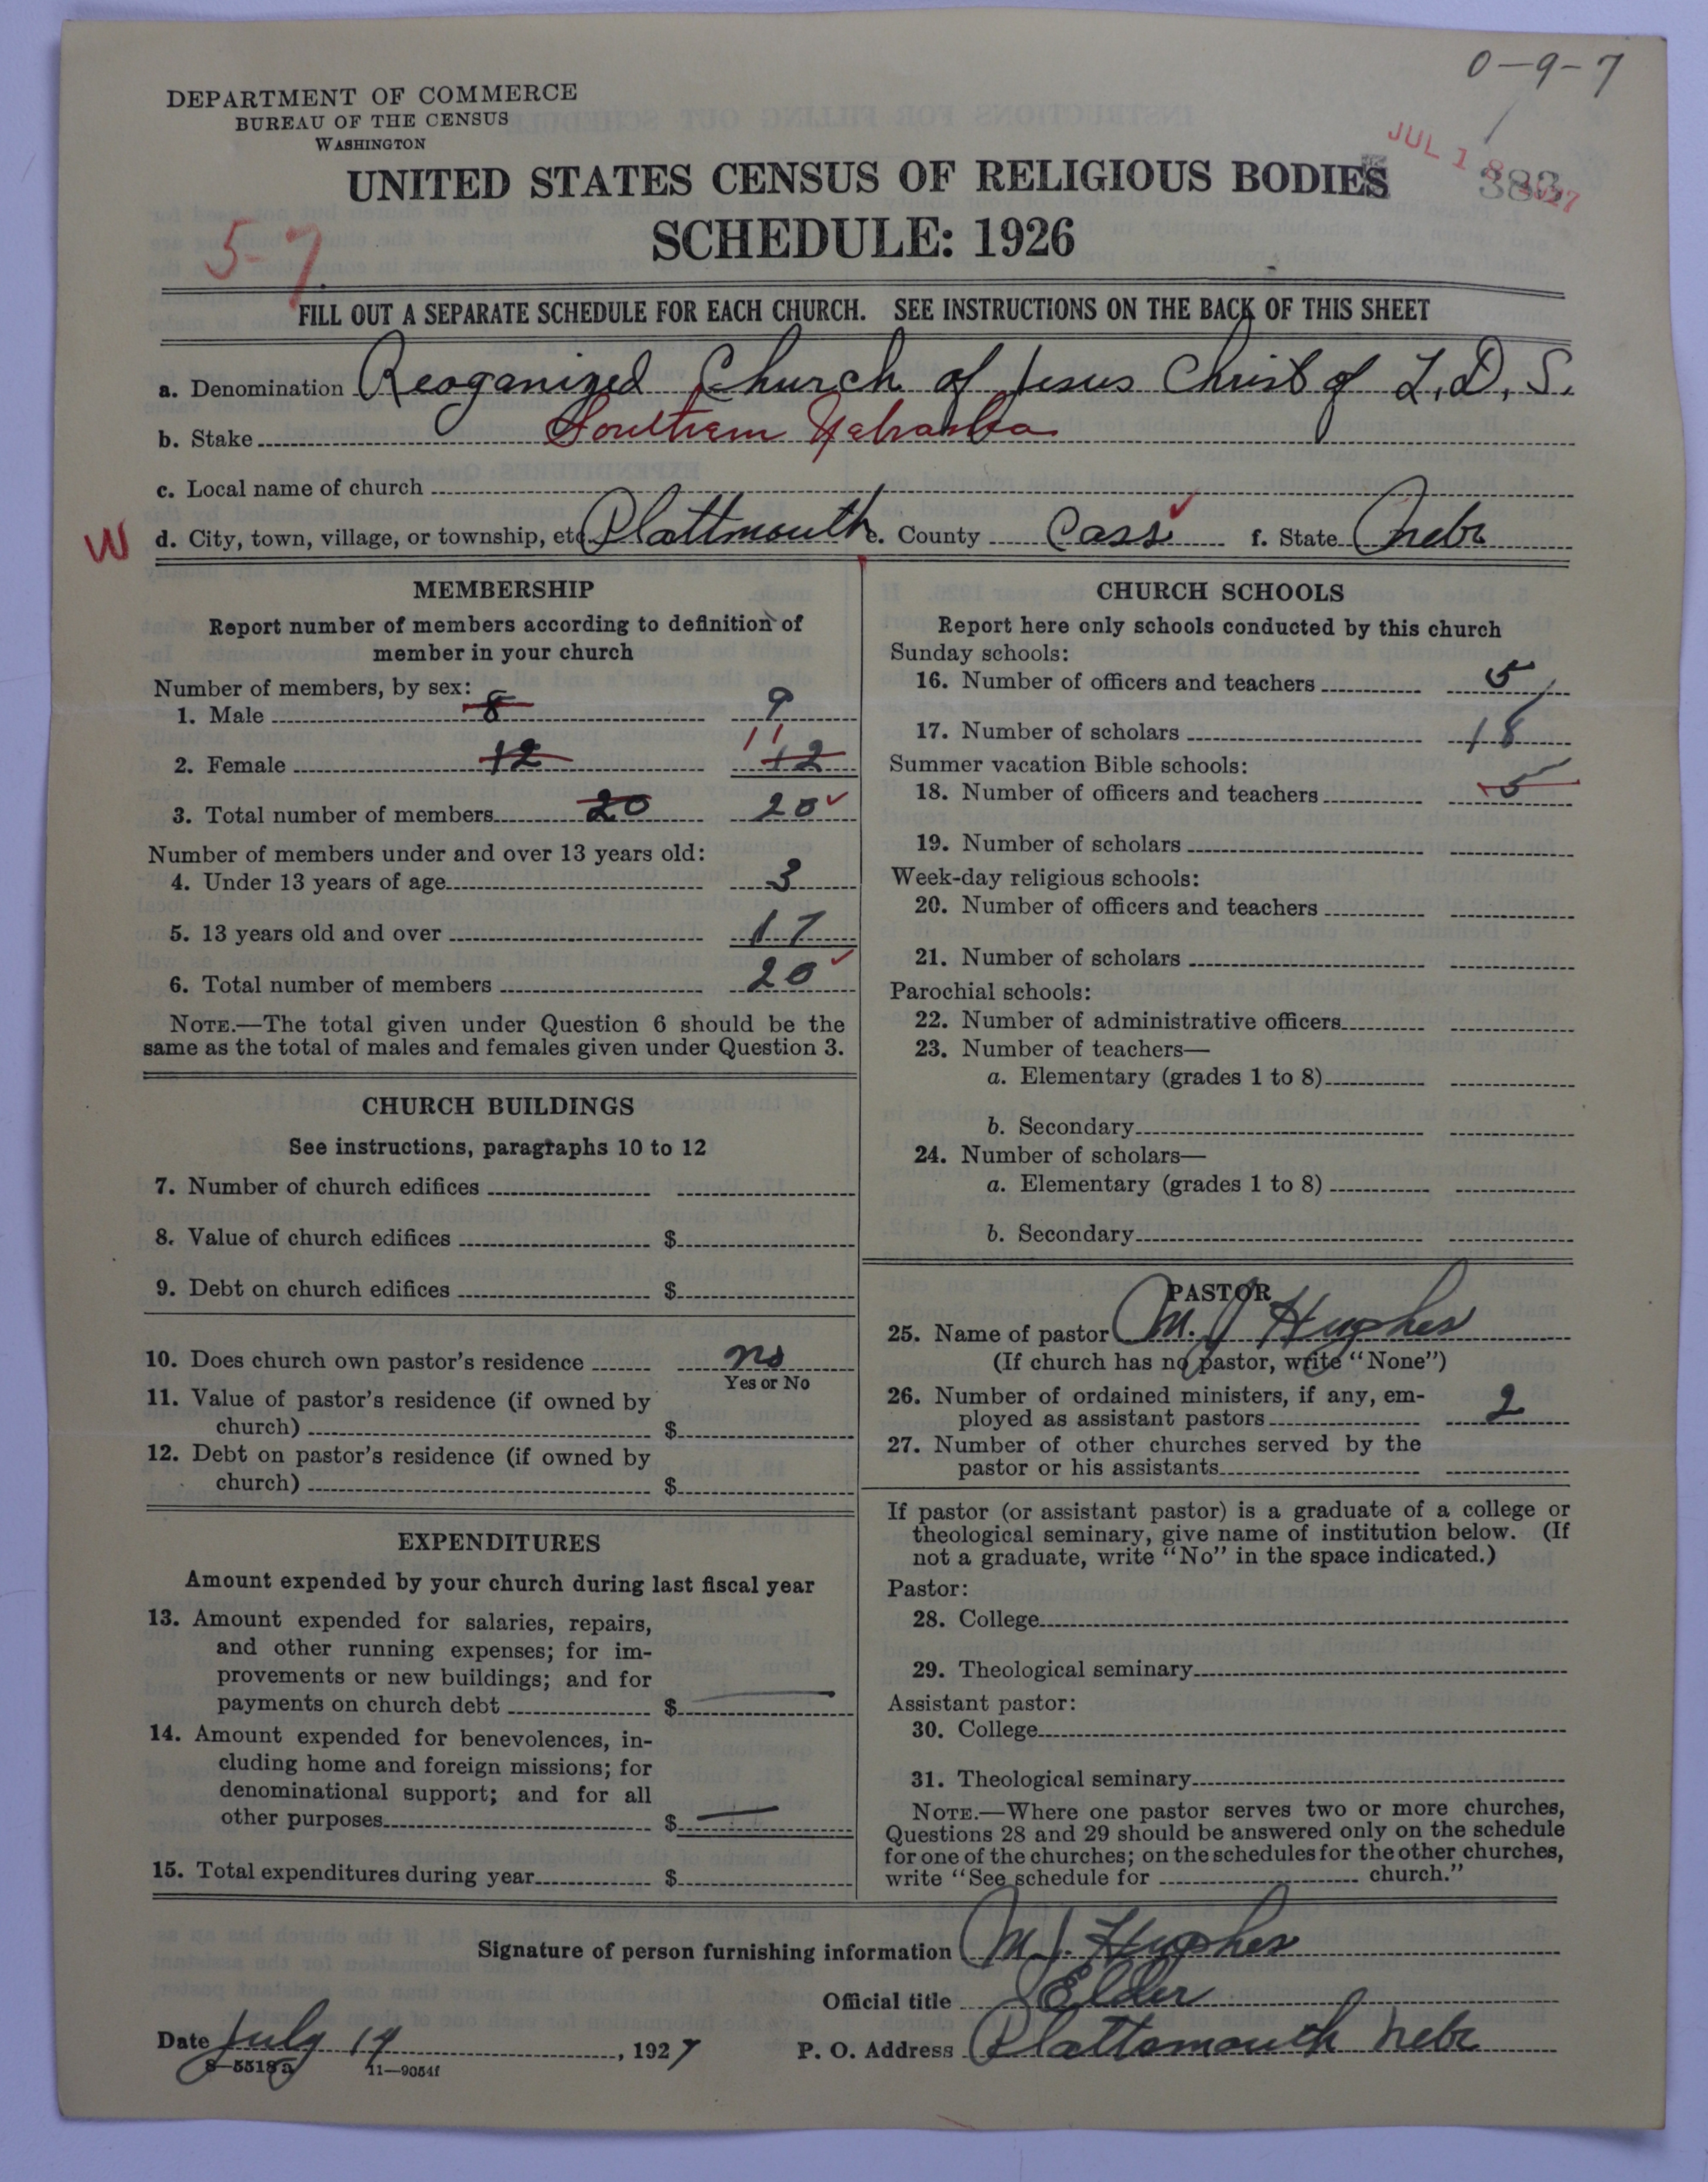 0-9-7
DEPARTMENT OF COMMERCE
BUREAU OF THE CENSUS
WASHINGTON
JUL 18 1927
383
UNITED STATES CENSUS OF RELIGIOUS BODIES
SCHEDULE: 1926
5-7
FILL OUT A SEPARATE SCHEDULE FOR EACH CHURCH. SEE INSTRUCTIONS ON THE BACK OF THIS SHEET
a. Denomination Reoganized Church of Jesus Christ of L.D.S.
b. Stake Southern Nebraska
c. Local name of church
W d. City, town, village, or township, etc. Plattmouth e. County Cass f. State Nebr
MEMBERSHIP
Report number of members according to definition of
member in your church
Number of members, by sex:
1. Male 8 9
11
2. Female 12 12
3. Total number of members 20 20
Number of members under and over 13 years old:
4. Under 13 years of age 3
5. 13 years old and over 17
6. Total number of members 20
NOTE.—The total given under Question 6 should be the
same as the total of males and females given under Question 3.
CHURCH BUILDINGS
See instructions, paragraphs 10 to 12
7. Number of church edifices
8. Value of church edifices $
9. Debt on church edifices $
10. Does church own pastor's residence no
Yes or No
11. Value of pastor's residence (if owned by
church) $
12. Debt on pastor's residence (if owned by
church) $
EXPENDITURES
Amount expended by your church during last fiscal year
13. Amount expended for salaries, repairs,
and other running expenses; for im-
provements or new buildings; and for
payments on church debt $
14. Amount expended for benevolences, in-
cluding home and foreign missions; for
denominational support; and for all
other purposes $
15. Total expenditures during year $
CHURCH SCHOOLS
Report here only schools conducted by this church
Sunday schools:
16. Number of officers and teachers 5
17. Number of scholars 18
Summer vacation Bible schools:
18. Number of officers and teachers 5
19. Number of scholars
Week-day religious schools:
20. Number of officers and teachers
21. Number of scholars
Parochial schools:
22. Number of administrative officers
23. Number of teachers—
a. Elementary (grades 1 to 8)
b. Secondary
24. Number of scholars—
a. Elementary (grades 1 to 8)
b. Secondary
PASTOR
25. Name of pastor M. J Hughes
(If church has no pastor, write "None")
26. Number of ordained ministers, if any, em-
ployed as assistant pastors 2
27. Number of other churches served by the
pastor or his assistants
If pastor (or assistant pastor) is a graduate of a college or
theological seminary, give name of institution below. (If
not a graduate, write "No" in the space indicated.)
Pastor:
28. College
29. Theological seminary
Assistant pastor:
30. College
31. Theological seminary
NOTE.—Where one pastor serves two or more churches,
Questions 28 and 29 should be answered only on the schedule
for one of the churches; on the schedules for the other churches,
write "See schedule for church."
Signature of person furnishing information M J. Hughes
Official title Elder
Date July 14, 1927 P. O. Address Plattsmouth Nebr
8—5518a 11—9054f